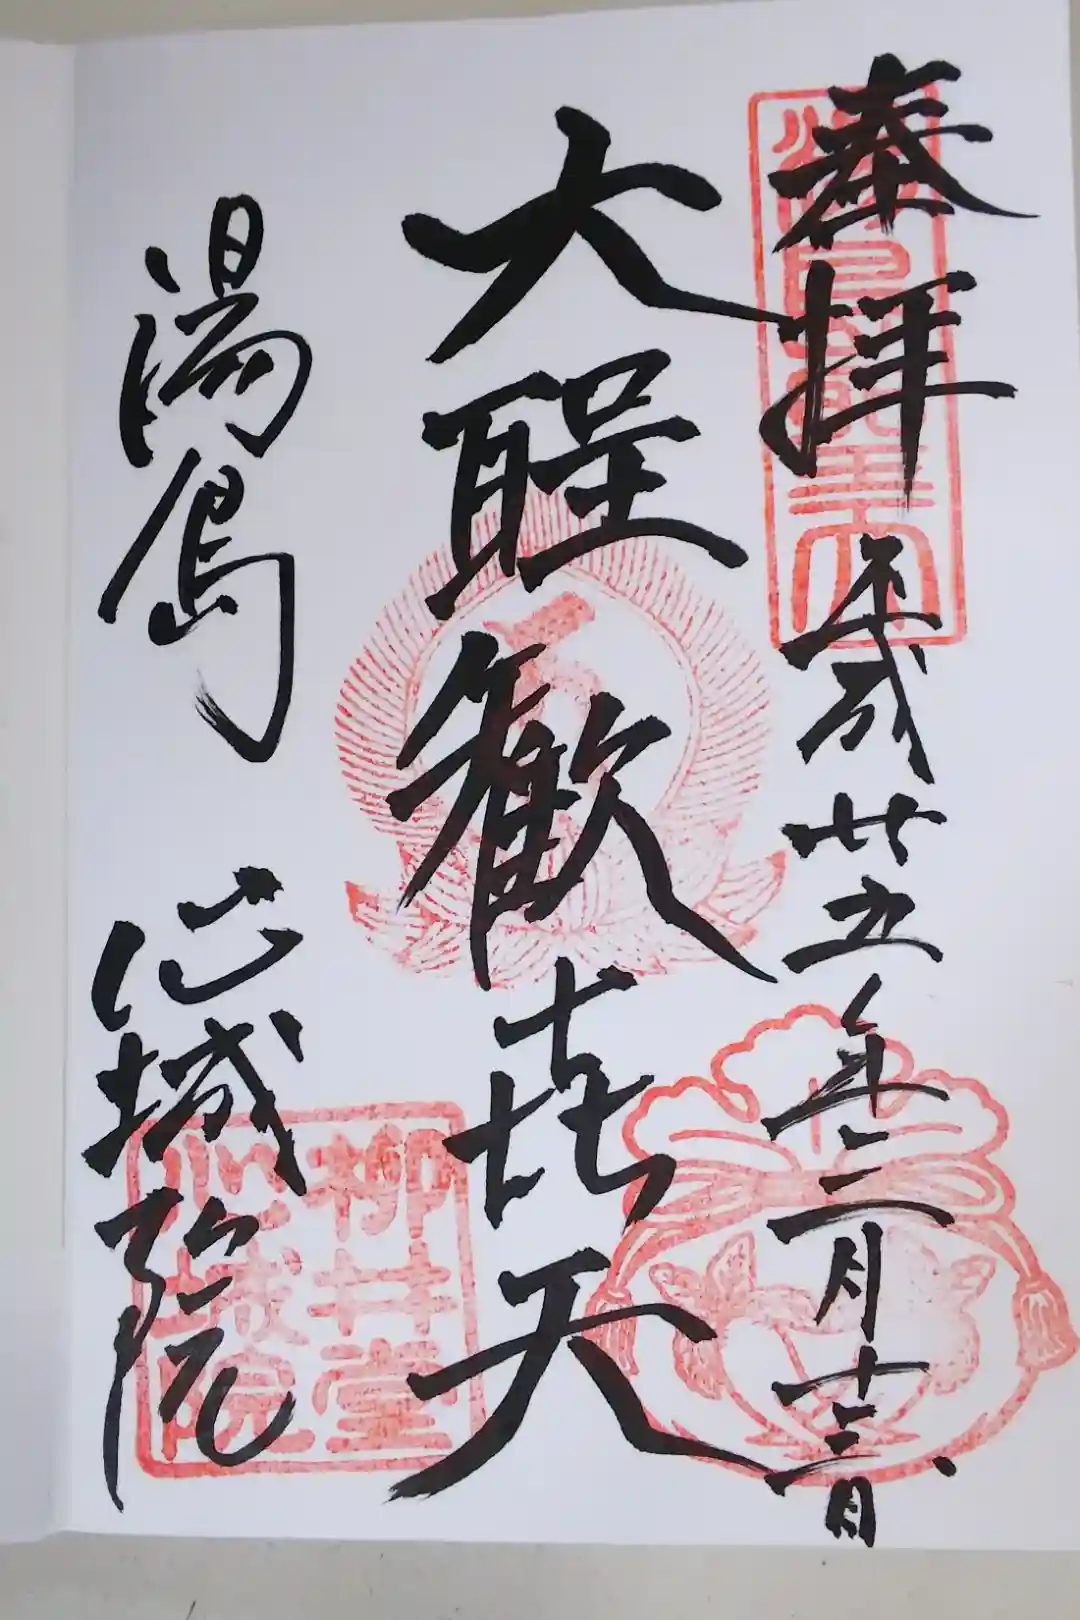 奉拝 平成廿五年二月十三日
大聖歓喜天
湯島 心城院
柳井堂
心城院